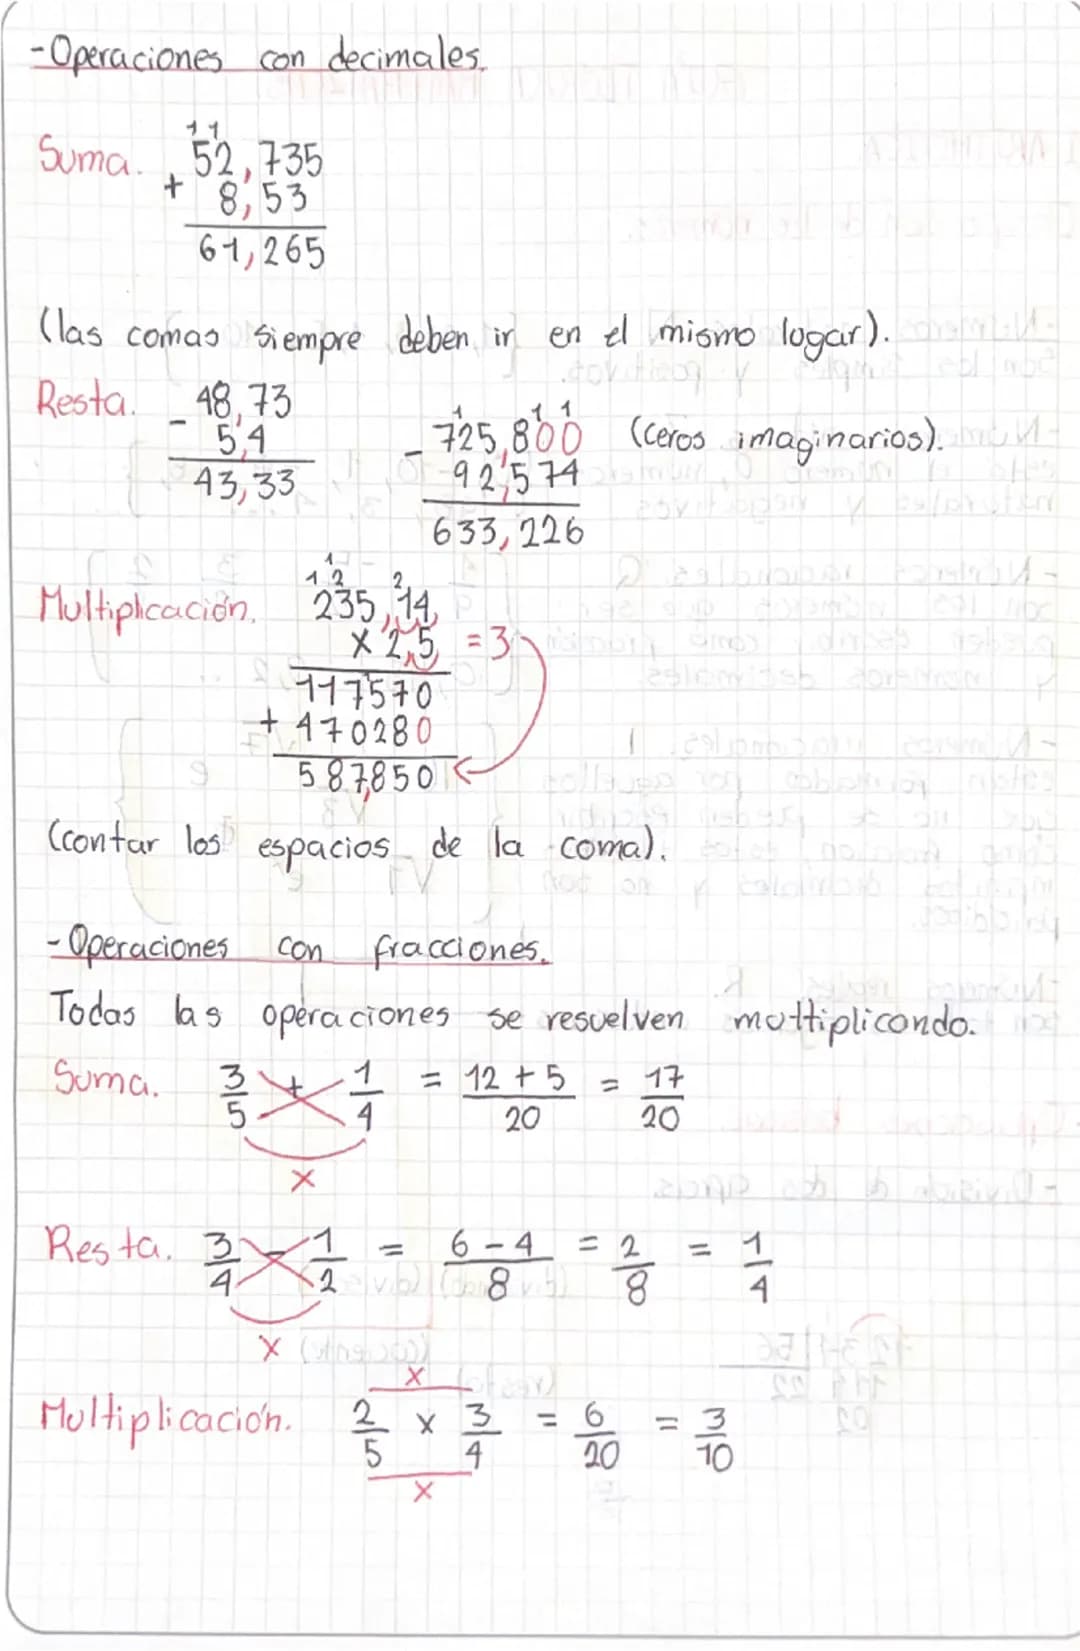 -Operaciones con decimales.
1 1
Suma. 52,735
+ 8,53
61,265
(las comas siempre deben ir en el mismo lugar).
Resta. - 48,73
5,4
43,33
1 1 1
- 725,800 (ceros imaginarios).
92,574
633,226
1
1 2 2
Multiplicación. 235,14
x 2,5 = 3
117570
+ 470280
587,850
(contar los espacios de la coma).
-Operaciones con fracciones.
Todas las operaciones se resuelven multiplicando.
Suma. 3/5 + 1/4 = 12 + 5/20 = 17/20
x
Resta. 3/4 - 1/2 = 6 - 4/8 = 2/8 = 1/4
x
x
Multiplicación. 2/5 x 3/4 = 6/20 = 3/10
x